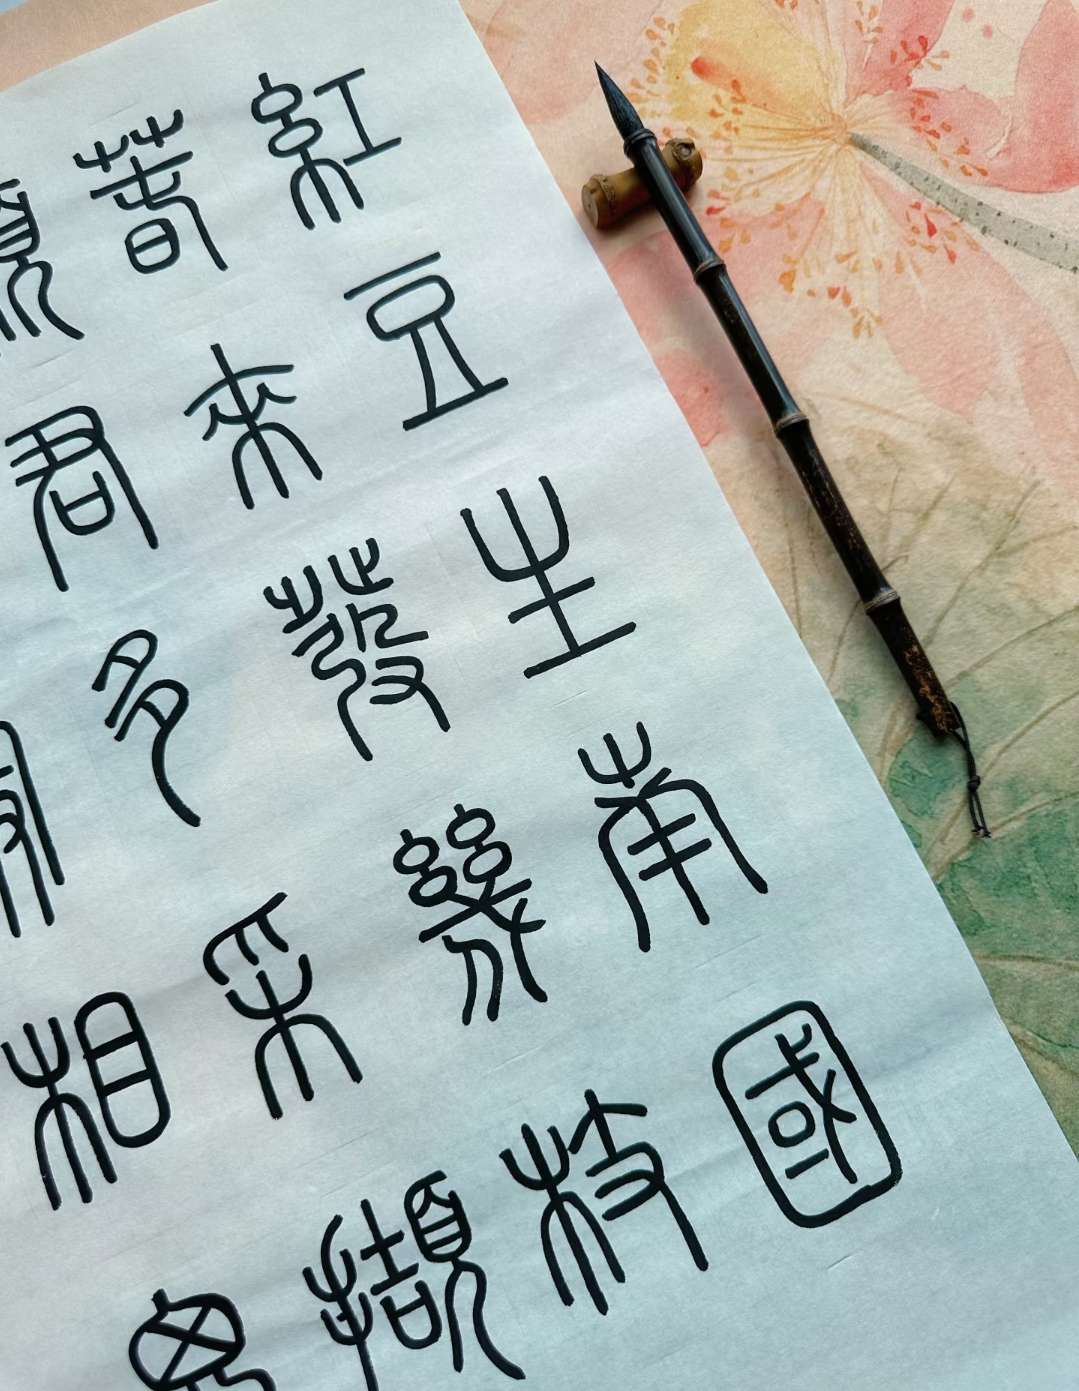 紅豆生南國
春來發幾枝
君多采擷
相思